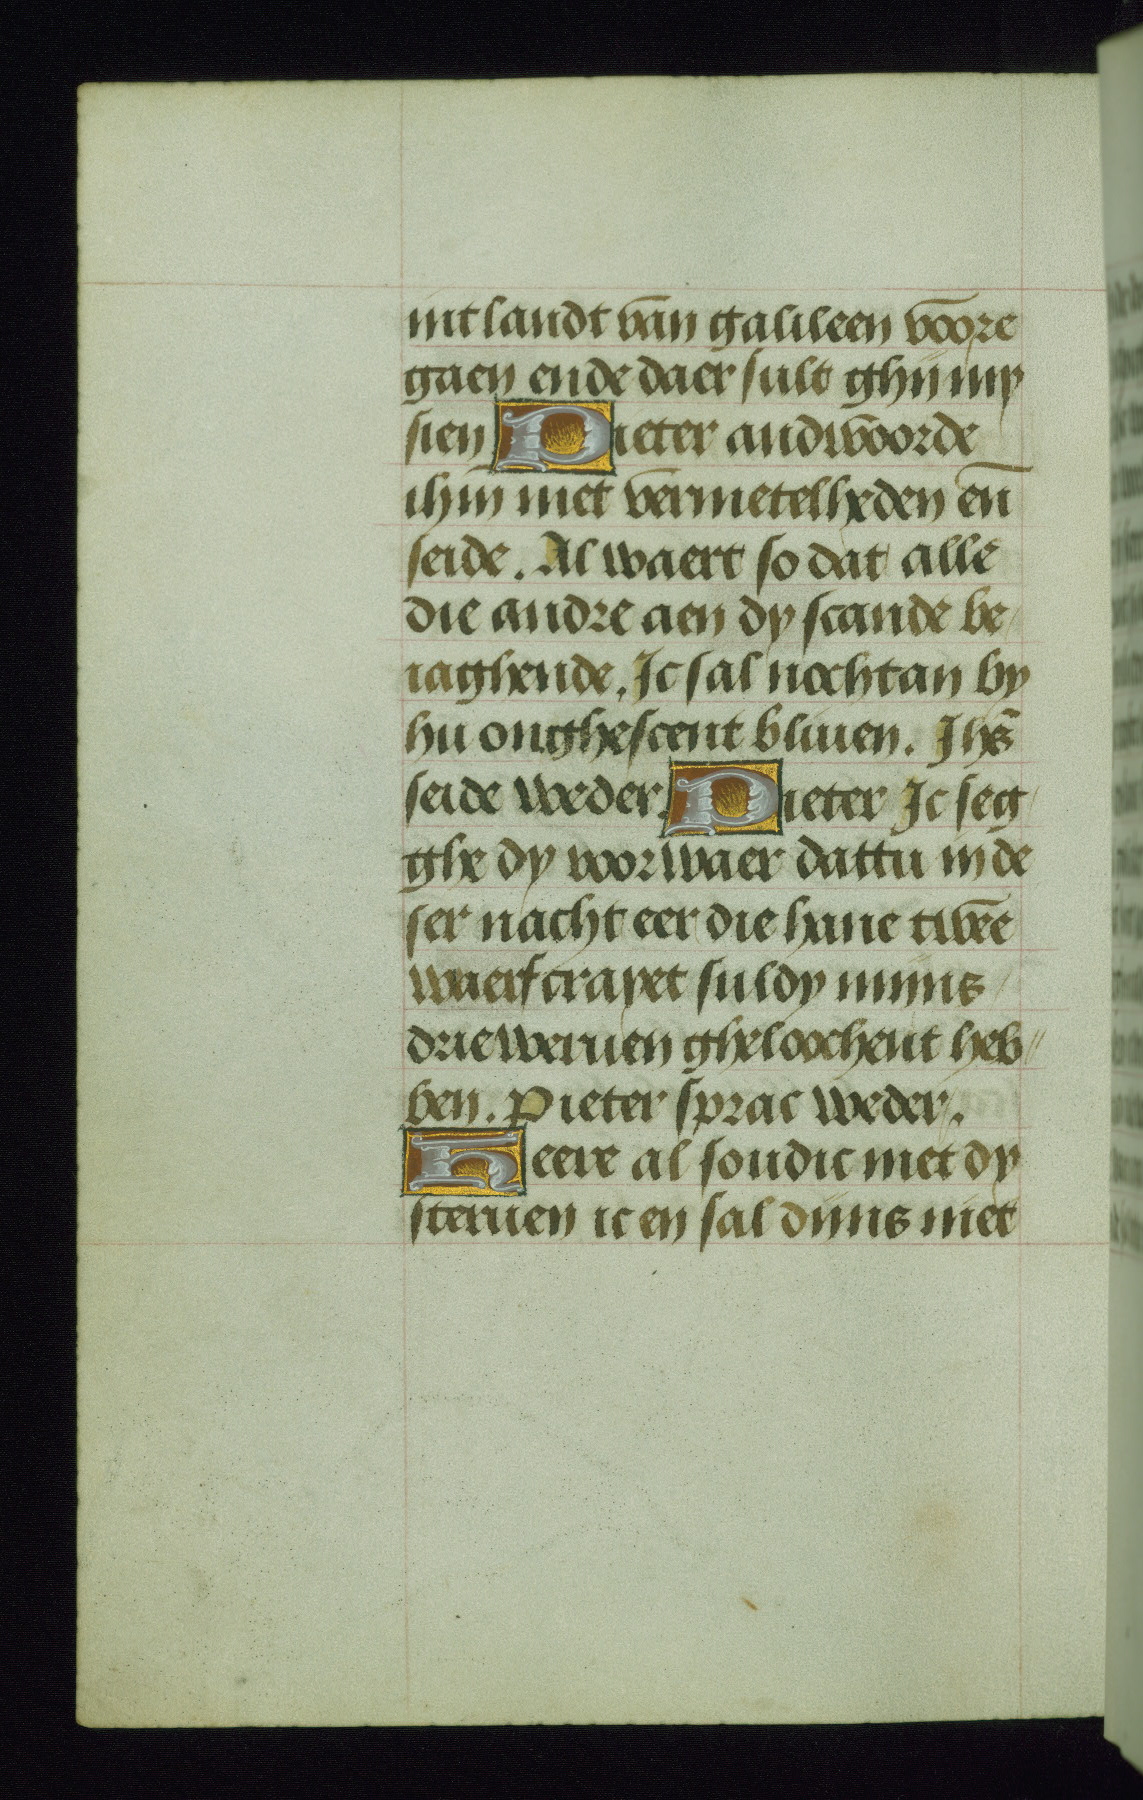 int landt van galileen voore
gaen ende daer sult ghij my
sien Pieter andwoorde
ihm̄ met vermetelheden en̄
seide. Al waert so dat alle
die andre aen dy scande be
iaghende. Ic sal nochtan by
hu onghescent bliuen. Ihs̄
seide weder. Pieter Ic seg
ghe dy voorwaer dattu in de
ser nacht eer die hane twee
waerf crayet suldy mijns
drie weruen gheloochent heb
ben. Pieter sprac weder.
Heere al soudic met dy
steruen ic en sal dijns niet